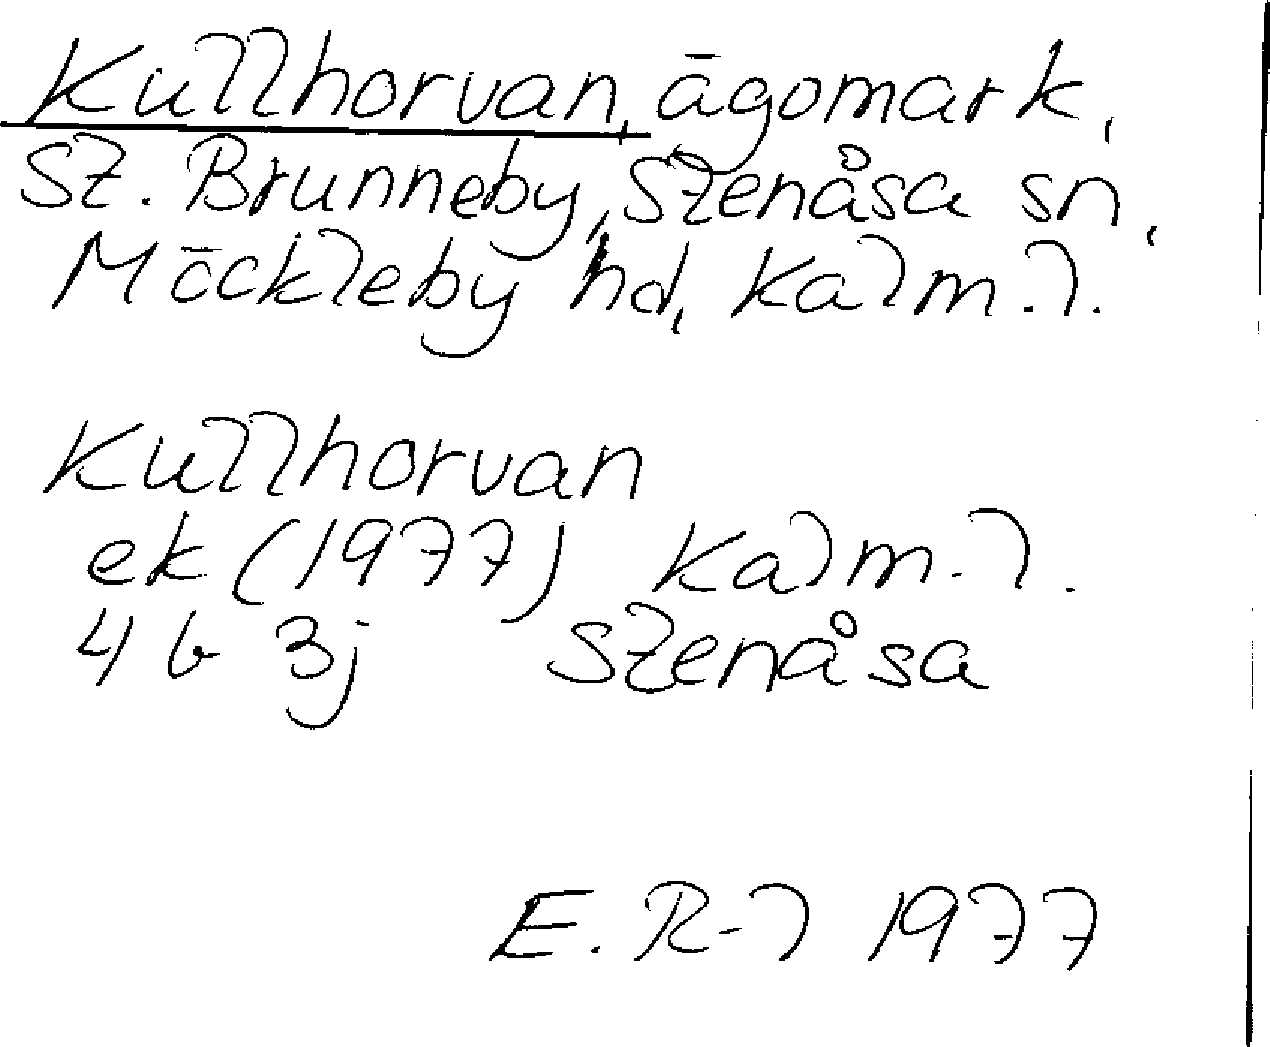 Kullhorvan, ägomark,
St. Brunneby, Stenåsa sn,
Möckleby hd, Kalm. l.
Kullhorvan
ek (1977) Kalm. l.
4 b 3j Stenåsa
E. R-l 1977